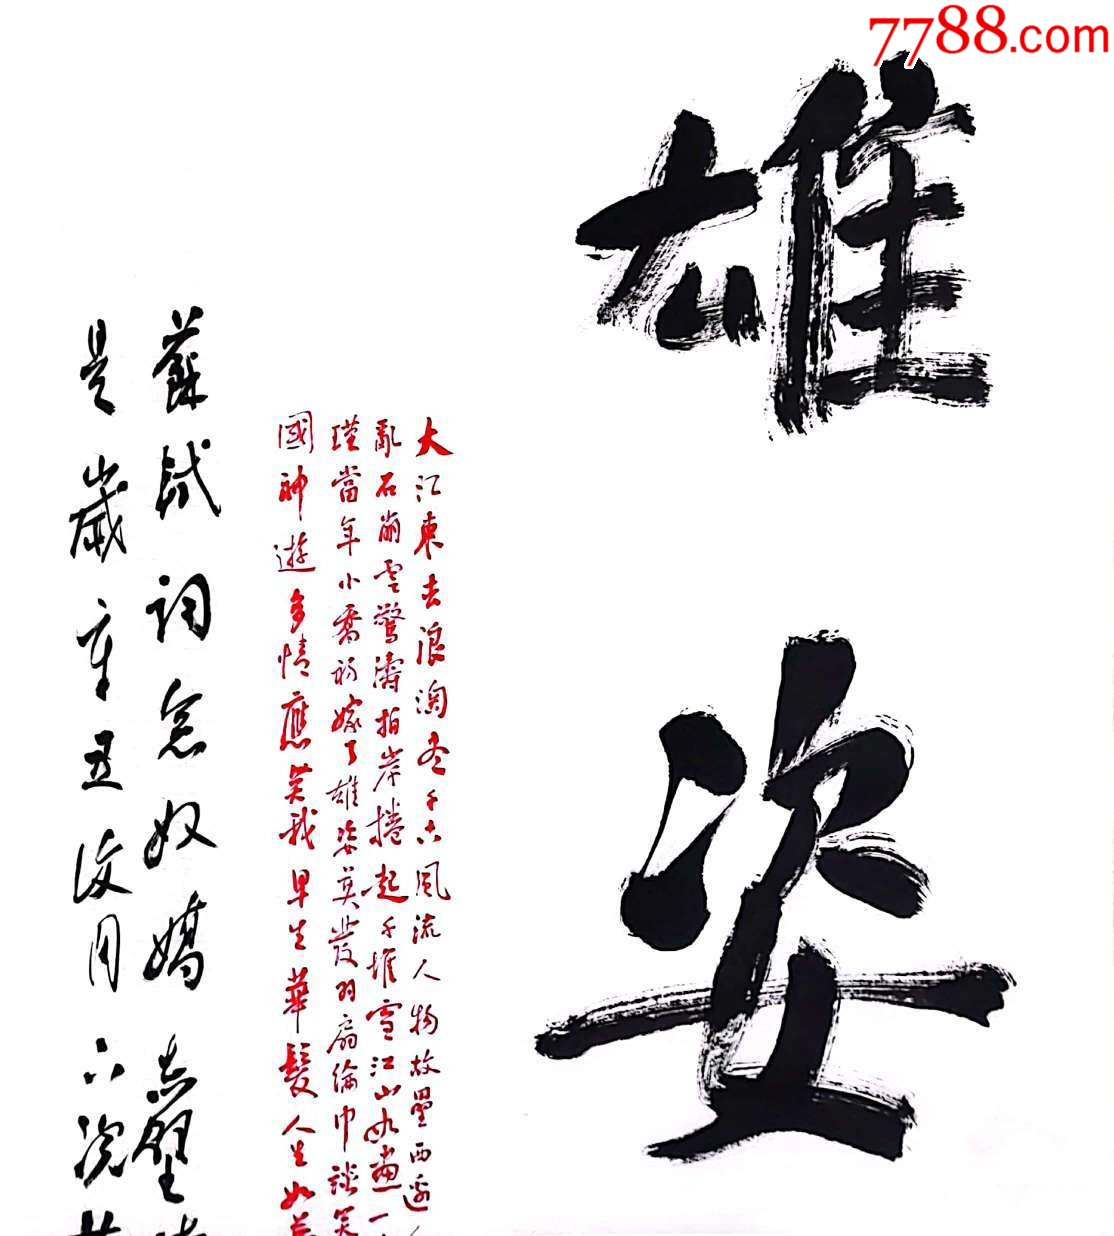 7788.com
雄姿
大江東去浪淘尽千古風流人物故壘西邊
亂石崩雲驚濤拍岸捲起千堆雪江山如畫一
瑾當年小喬初嫁了雄姿英發羽扇綸巾談笑
國神遊多情應笑我早生華髮人生如
蘇軾詞念奴嬌赤壁
是歲辛丑月下浣